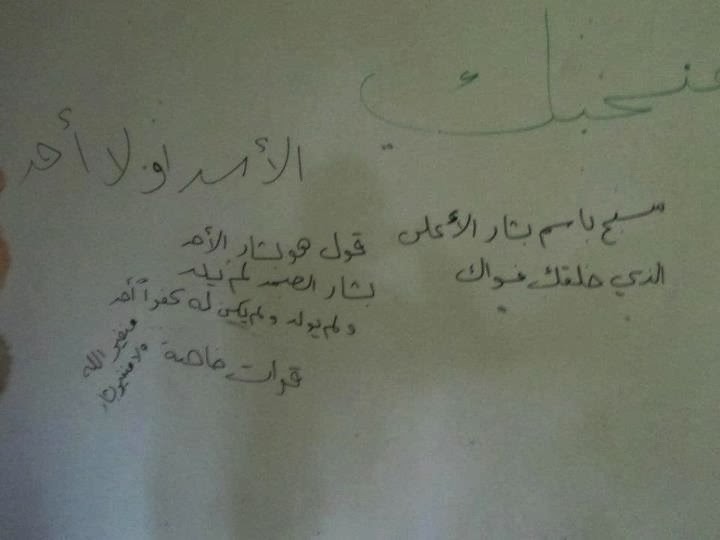 منحبك
الأسد او لا أحد
سبح باسم بشار الأعلى
الذي خلقك فسواك
قول هو بشار الأحد
بشار الصمد لم يلد
و لم يولد و لم يكن له كفواً أحد
قوات خاصة
الله
ولا